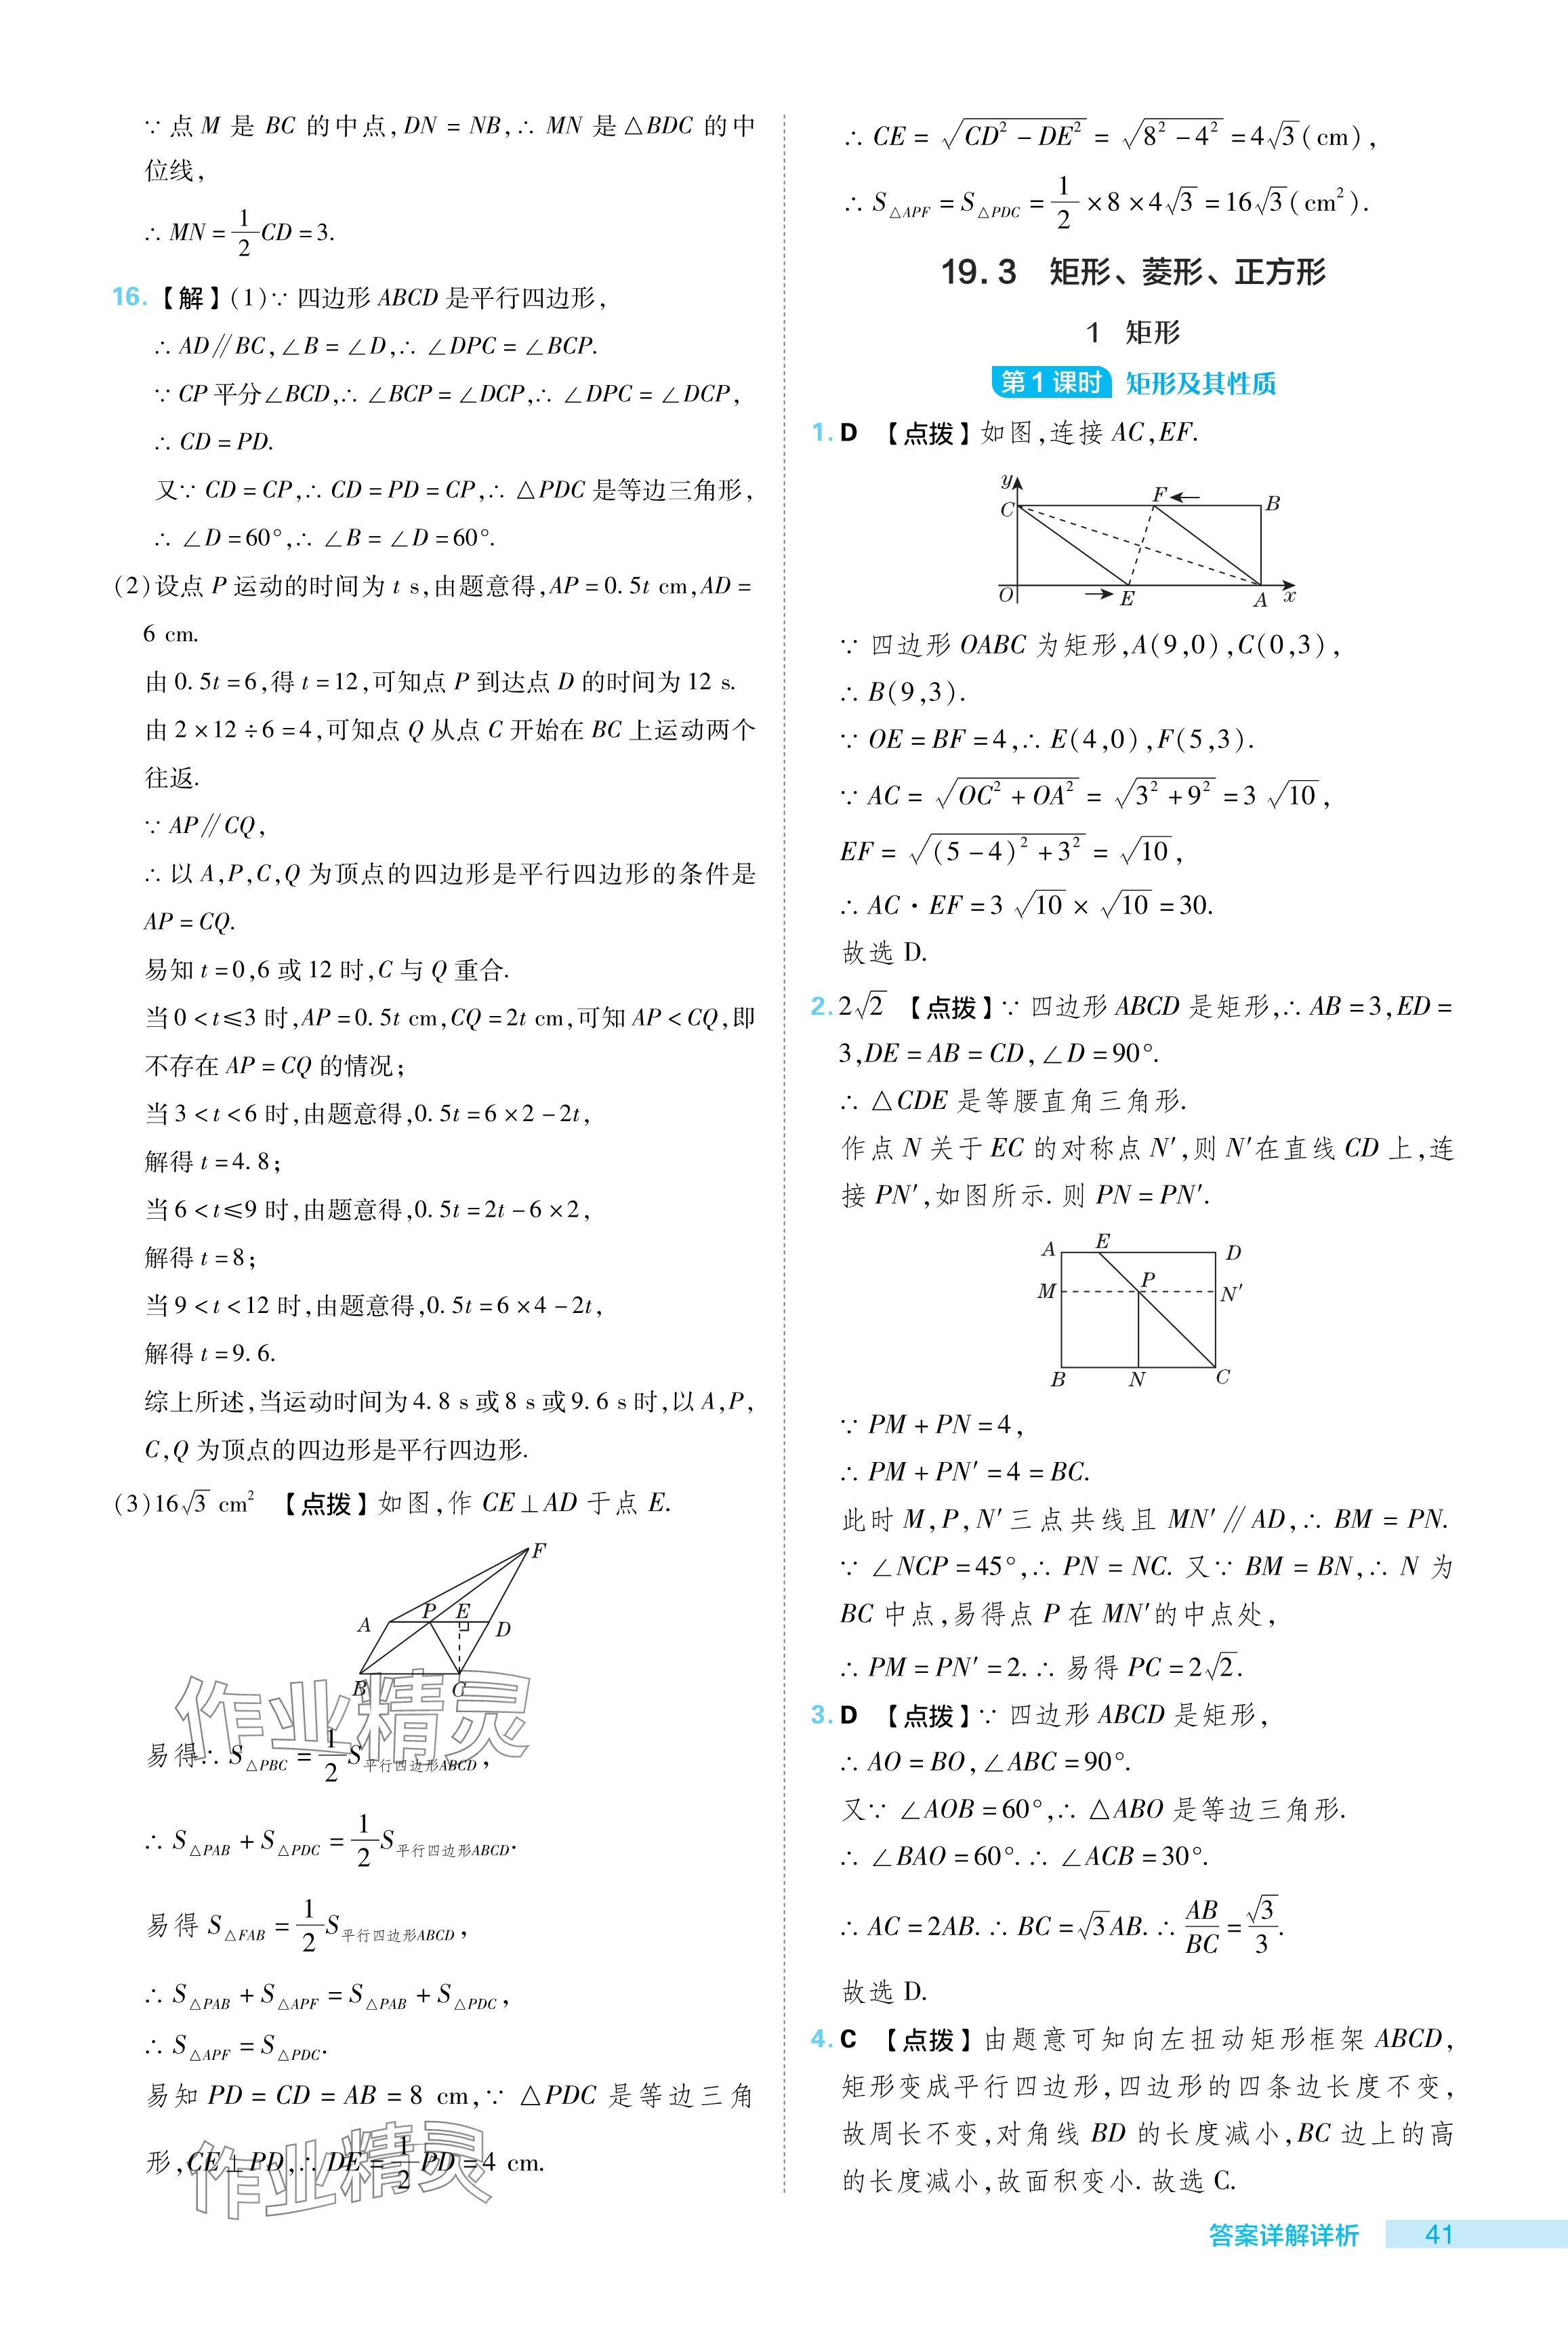 ∵ 点 M 是 BC 的中点,DN = NB,∴ MN 是△BDC 的中
位线,
∴ MN = 1/2 CD = 3.
16.【解】(1)∵ 四边形 ABCD 是平行四边形,
∴ AD∥BC,∠B = ∠D,∴ ∠DPC = ∠BCP.
∵ CP 平分∠BCD,∴ ∠BCP = ∠DCP,∴ ∠DPC = ∠DCP,
∴ CD = PD.
又∵ CD = CP,∴ CD = PD = CP,∴ △PDC 是等边三角形,
∴ ∠D = 60°,∴ ∠B = ∠D = 60°.
(2)设点 P 运动的时间为 t s,由题意得,AP = 0.5t cm,AD =
6 cm.
由 0.5t = 6,得 t = 12,可知点 P 到达点 D 的时间为 12 s.
由 2 × 12 ÷ 6 = 4,可知点 Q 从点 C 开始在 BC 上运动两个
往返.
∵ AP∥CQ,
∴ 以 A,P,C,Q 为顶点的四边形是平行四边形的条件是
AP = CQ.
易知 t = 0,6 或 12 时,C 与 Q 重合.
当 0 < t ≤ 3 时,AP = 0.5t cm,CQ = 2t cm,可知 AP < CQ,即
不存在 AP = CQ 的情况;
当 3 < t < 6 时,由题意得,0.5t = 6 × 2 − 2t,
解得 t = 4.8;
当 6 < t ≤ 9 时,由题意得,0.5t = 2t − 6 × 2,
解得 t = 8;
当 9 < t < 12 时,由题意得,0.5t = 6 × 4 − 2t,
解得 t = 9.6.
综上所述,当运动时间为 4.8 s 或 8 s 或 9.6 s 时,以 A,P,
C,Q 为顶点的四边形是平行四边形.
(3)16√3 cm² 【点拨】如图,作 CE⊥AD 于点 E.
F
A P E D
B C
作业精灵
易得∴ S△PBC = 1/2 S平行四边形ABCD,
∴ S△PAB + S△PDC = 1/2 S平行四边形ABCD.
易得 S△FAB = 1/2 S平行四边形ABCD,
∴ S△PAB + S△APF = S△PAB + S△PDC,
∴ S△APF = S△PDC.
易知 PD = CD = AB = 8 cm,∵ △PDC 是等边三角
形,CE⊥PD,∴ DE = 1/2 PD = 4 cm.
作业精灵
∴ CE = √(CD² − DE²) = √(8² − 4²) = 4√3(cm),
∴ S△APF = S△PDC = 1/2 × 8 × 4√3 = 16√3(cm²).
19.3 矩形、菱形、正方形
1 矩形
第 1 课时 矩形及其性质
1. D 【点拨】如图,连接 AC,EF.
y
C F B
O E A x
∵ 四边形 OABC 为矩形,A(9,0),C(0,3),
∴ B(9,3).
∵ OE = BF = 4,∴ E(4,0),F(5,3).
∵ AC = √(OC² + OA²) = √(3² + 9²) = 3√10,
EF = √((5 − 4)² + 3²) = √10,
∴ AC · EF = 3√10 × √10 = 30.
故选 D.
2. 2√2 【点拨】∵ 四边形 ABCD 是矩形,∴ AB = 3,ED =
3,DE = AB = CD,∠D = 90°.
∴ △CDE 是等腰直角三角形.
作点 N 关于 EC 的对称点 N′,则 N′在直线 CD 上,连
接 PN′,如图所示. 则 PN = PN′.
A E D
M P N′
B N C
∵ PM + PN = 4,
∴ PM + PN′ = 4 = BC.
此时 M,P,N′三点共线且 MN′∥AD,∴ BM = PN.
∵ ∠NCP = 45°,∴ PN = NC. 又∵ BM = BN,∴ N 为
BC 中点,易得点 P 在 MN′的中点处,
∴ PM = PN′ = 2. ∴ 易得 PC = 2√2.
3. D 【点拨】∵ 四边形 ABCD 是矩形,
∴ AO = BO,∠ABC = 90°.
又∵ ∠AOB = 60°,∴ △ABO 是等边三角形.
∴ ∠BAO = 60°. ∴ ∠ACB = 30°.
∴ AC = 2AB. ∴ BC = √3AB. ∴ AB/BC = √3/3.
故选 D.
4. C 【点拨】由题意可知向左扭动矩形框架 ABCD,
矩形变成平行四边形,四边形的四条边长度不变,
故周长不变,对角线 BD 的长度减小,BC 边上的高
的长度减小,故面积变小. 故选 C.
答案详解详析 41